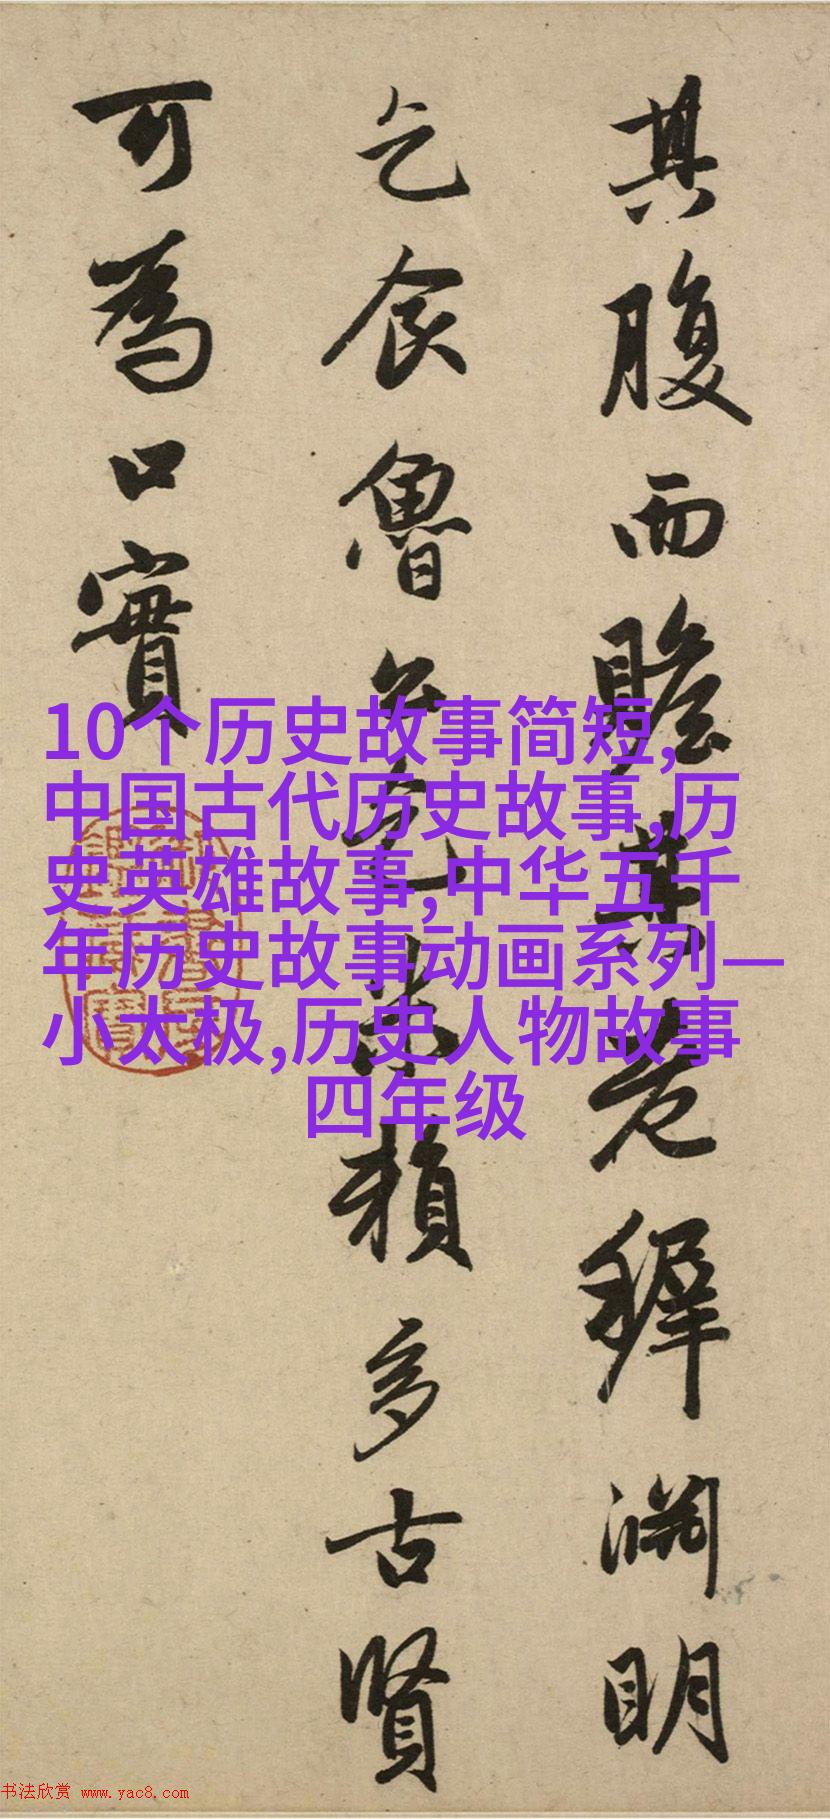 其腹而贍其老穉淵明
乞食魯公乞米賴多古賢
可為口實
10个历史故事简短,
中国古代历史故事,历
史英雄故事,中华五千
年历史故事动画系列—
小太极,历史人物故事
四年级
书法欣赏 www.yac8.com